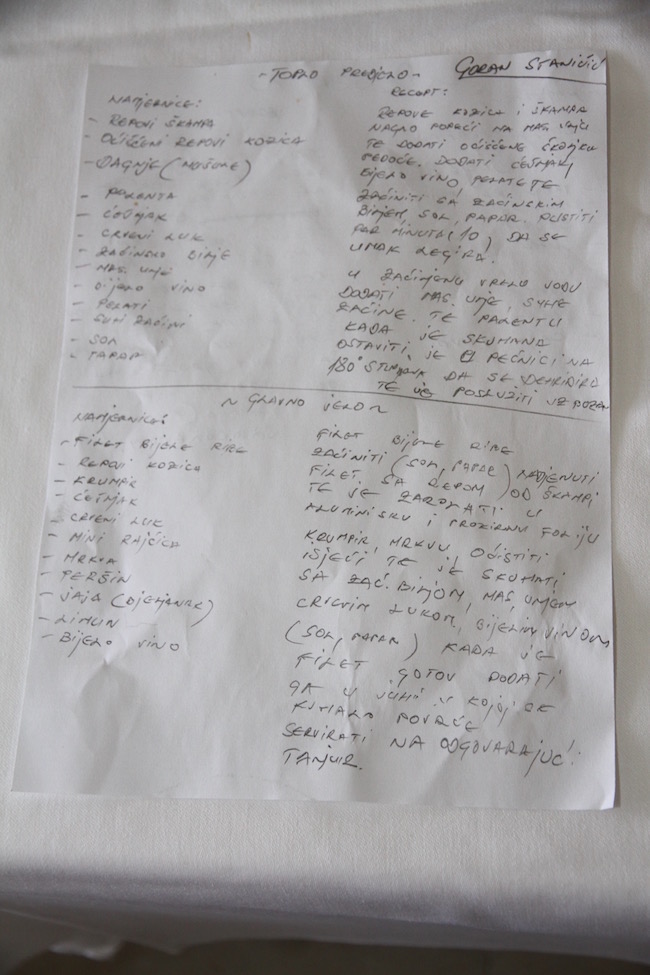 - TOPLO PREDJELO -
GORAN STANIČIĆ
NAMJERNICE:
- REPOVI ŠKAMPA
- OČIŠĆENI REPOVI KOZICA
- DAGNJE (MUŠULE)
- PALENTA
- ČEŠNJAK
- CRVENI LUK
- ZAČINSKO BILJE
- MAS. ULJE
- BIJELO VINO
- PELATI
- SUHI ZAČINI
- SOL
- PAPAR
RECEPT:
REPOVE KOZICA I ŠKAMPA
NAGLO POPEĆI NA MAS. ULJU
TE DODATI OČIŠĆENE ŠKOLJKE
DODATI ČEŠNJAK,
BIJELO VINO, PELATE TE
ZAČINITI SA ZAČINSKIM
BILJEM, SOL, PAPAR. PUSTITI
PAR MINUTA (10) DA SE
UMAK LEGIRA.
U ZAČINJENU VRELU VODU
DODATI MAS. ULJE, SUHE
ZAČINE, TE PALENTU
KADA JE SKUHANA
OSTAVITI JE U PEĆNICI NA
180° DA SE DEHIDRIRA
TE JE POSLUŽITI UZ
~ GLAVNO JELO ~
NAMJERNICE:
- FILET BIJELE RIBE
- REPOVI KOZICA
- KRUMPIR
- ČEŠNJAK
- CRVENI LUK
- MINI RAJČICA
- MRKVA
- PERŠIN
- JAJA (BJELANJAK)
- LIMUN
- BIJELO VINO
FILET BIJELE RIBE
ZAČINITI (SOL, PAPAR) NADJENUTI
FILET SA REPOM OD ŠKAMPI
TE JE ZAROLATI U
ALUMINIJSKU I PROZIRNU FOLIJU
KRUMPIR, MRKVU, OČISTITI
ISJEĆI TE JE SKUHATI
SA ZAČ. BILJOM, MAS, ULJEM
CRVENIM LUKOM, BIJELIM VINOM
(SOL, PAPAR) KADA JE
FILET GOTOV DODATI
GA U JUHU U KOJOJ SE
KUHALO POVRĆE
SERVIRATI NA ODGOVARAJUĆI
TANJUR.